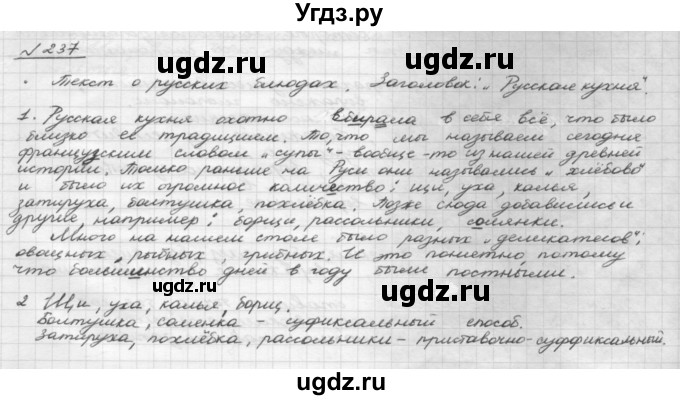 Угдз.ру
№ 237
• Текст о русских блюдах. Заголовок: „Русская кухня".
1. Русская кухня охотно вбирала в себя всё, что было
близко её традицием. То, что мы называем сегодня
французским словом „супы" - вообще-то из нашей древней
истории. Только раньше на Руси они назывались „хлёбово"
и было их огромное количество: щи, уха, калья,
затируха, болтушка, похлёбка. Позже сюда добавились и
другие, например: борщи, рассольники, солянки.
Много на нашем столе было разных „деликатесов";
овощных, рыбных, грибных. И это понятно, потому
что большинство дней в году были постными.
2 Щи, уха, калья, борщ.
Болтушка, солянка - суфиксальный способ.
Затируха, похлёбка, рассольники - приставочно-суффиксальный.
ugdz.ru ugdz.ru ugdz.ru
ugdz.ru ugdz.ru
ugdz.ru ugdz.ru ugdz.ru
ugdz.ru ugdz.ru
ugdz.ru